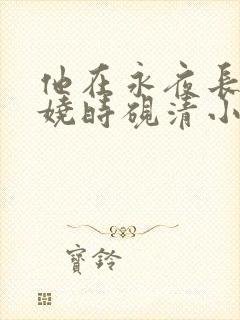 他在永夜長
嬈時硯清小
寶鈴